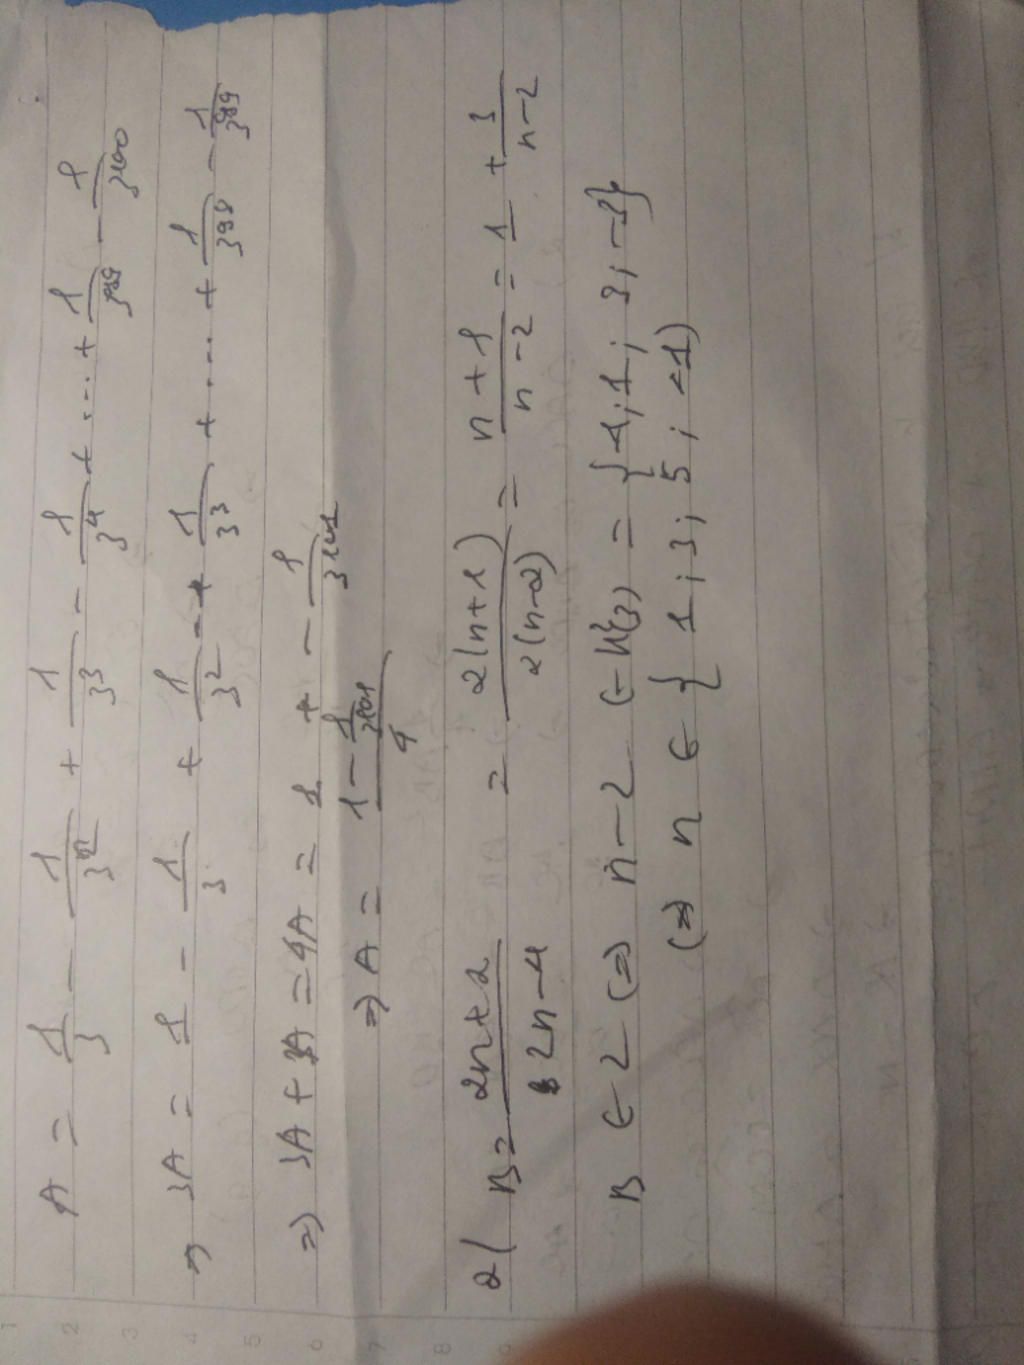 A = 1/3 - 1/3^2 + 1/3^3 - 1/3^4 + ... + 1/3^99 - 1/3^100
=> 3A = 1 - 1/3 + 1/3^2 - + 1/3^3 + ... + 1/3^98 - 1/3^99
=> 3A + A = 4A = 1 + - 1/3^101
=> A = (1 - 1/3^101)/4
2( B = (2n+2)/(2n-4) = 2(n+1)/2(n-2) = (n+1)/(n-2) = 1 + 3/(n-2)
B ∈ Z (=) n-2 ∈ Ư(3) = {-1; 1; 3; -3}
(=) n ∈ { 1; 3; 5; -1)